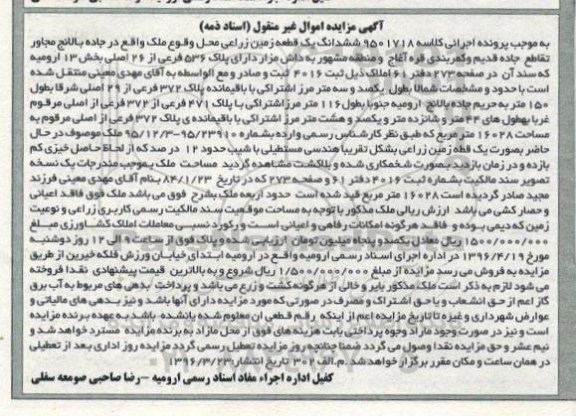 آگهی مزایده اموال غیر منقول (اسناد ذمه)
به موجب پرونده اجرائی کلاسه 9501718 ششدانگ یک قطعه زمین زراعی محل وقوع ملک واقع در جاده بالانج مجاور
تقاطع جاده قدیم وکمربندی قره آغاج و منطقه مشهور به داش مزار دارای پلاک 536 فرعی از 26 اصلی بخش 13 ارومیه
که سند آن در صفحه 273 دفتر 61 املاک ذیل ثبت 4016 ثبت و صادر و مع الواسطه به آقای مهدی معینی منتقل شده
است با حدود و مشخصات شمالا بطول یکصد و سه متر مرز اشتراکی با باقیمانده پلاک 372 فرعی از 29 اصلی شرقا بطول
150 متر به حریم جاده بالانج ارومیه جنوبا بطول 116 متر مرز اشتراکی با پلاک 471 فرعی از 372 فرعی از اصلی مرقوم
غربا بهطول های 44 متر و شانزده متر و یکصد و هشت متر مرز اشتراکی با باقیمانده ی پلاک 372 فرعی از اصلی مرقوم به
مساحت 16028 متر مربع که طبق نظر کارشناس رسمی وارده بشماره 23910-95/12/3 ملک موصوف در حال
حاضر بصورت یک قطعه زمین زراعی بشکل تقریبا هندسی مستطیلی با شیب حدود 12 در صد که از لحاظ حاصل خیزی کم
بازده و در زمان بازدید بصورت شخمکاری شده و بلاکشت مشاهده گردید مساحت ملک بموجب مندرجات یک نسخه
تصویر سند مالکیت بشماره ثبت 4016 دفتر 61 و صفحه 273 که در تاریخ 84/1/23 بنام آقای مهدی معینی فرزند
مجید صادر گردیده است 16028 متر مربع قید شده است حدود اربعه ملک بشرح فوق می باشد ملک فوق فاقد اعیانی
و حصار کشی می باشد ارزش ریالی ملک مذکور با توجه به مساحت موقعیت سند مالکیت رسمی کاربری زراعی و نوعیت
زمین که دیمی بوده و فاقد هرگونه امکانات رفاهی و اعیانی است و رکورد نسبی معاملات املاک کشاورزی مبلغ
1500/000/000 ریال معادل یکصد و پنجاه میلیون تومان ارزیابی شده و پلاک فوق از ساعت 9 الی 12 روز دوشنبه
مورخ 1396/4/19 در اداره اجرای اسناد رسمی ارومیه واقع در ارومیه ابتدای خیابان ورزش فلکه خیرین از طریق
مزایده به فروش می رسد مزایده از مبلغ 1/500/000/000 ریال شروع و به بالاترین قیمت پیشنهادی نقدا فروخته
می شود لازم به ذکر است ملک مذکور بایر و خالی از هرگونه کشت و زرع می باشد و پرداخت بدهی های مربوط به آب برق
گاز اعم از حق انشعاب و یا حق اشتراک و مصرف در صورتی که مورد مزایده دارای آنها باشد و نیز بدهی های مالیاتی و
عوارض شهرداری و غیره تا تاریخ مزایده اعم از اینکه رقم قطعی ان معلوم شده یا نشده باشد به عهده برنده مزایده
است و نیز در صورت وجود مازاد وجوه پرداختی بابت هزینه های فوق از محل مازاد به برنده مزایده مسترد خواهد شد و
نیم عشر و حق مزایده نقدا وصول می گردد ضمنا چنانچه روز مزایده تعطیل رسمی گردد مزایده روز اداری بعد از تعطیلی
در همان ساعت و مکان مقرر برگزار خواهد شد.م.الف 300 تاریخ انتشار:1396/3/23
کفیل اداره اجراء مفاد اسناد رسمی ارومیه –رضا صاحبی صومعه سفلی